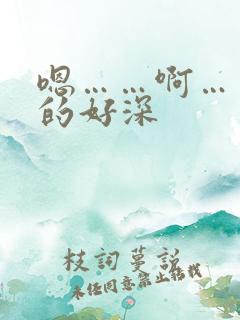 嗯……啊…
的好深
枝词蔓说
未经同意禁止转载